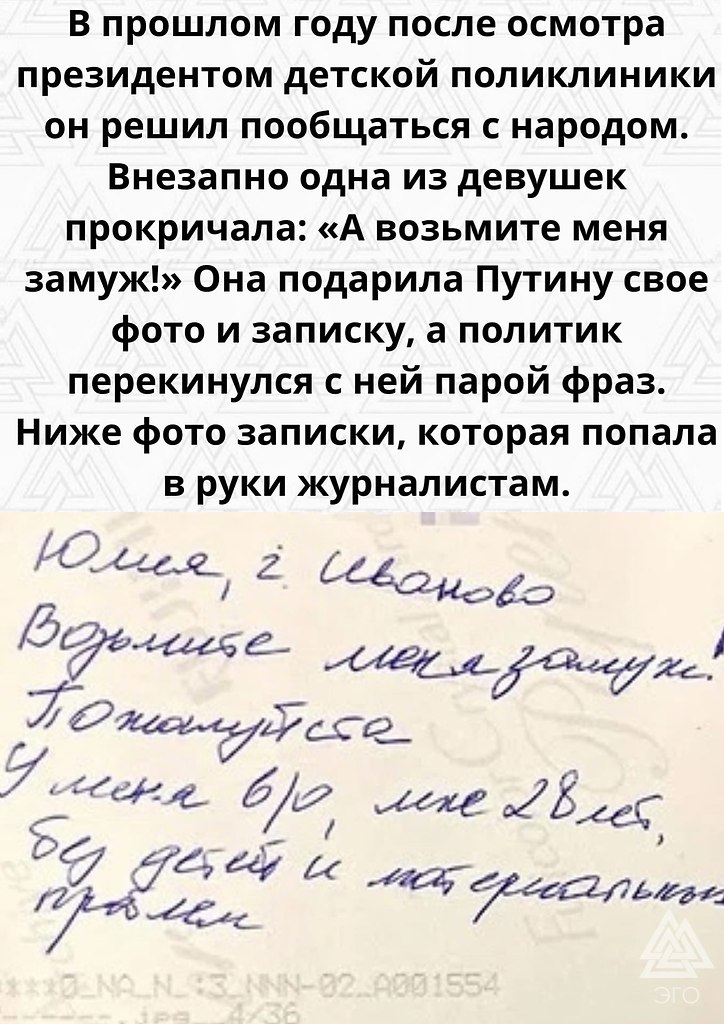 В прошлом году после осмотра
президентом детской поликлиники
он решил пообщаться с народом.
Внезапно одна из девушек
прокричала: «А возьмите меня
замуж!» Она подарила Путину свое
фото и записку, а политик
перекинулся с ней парой фраз.
Ниже фото записки, которая попала
в руки журналистам.
Юлия, г. Иваново
Возьмите меня замуж!
Пожалуйста
У меня в/о, мне 28 лет,
без детей и материальных
проблем
***0_NA_N_:3_NNN-02_A001554
.jpg 4/36
ЭГО